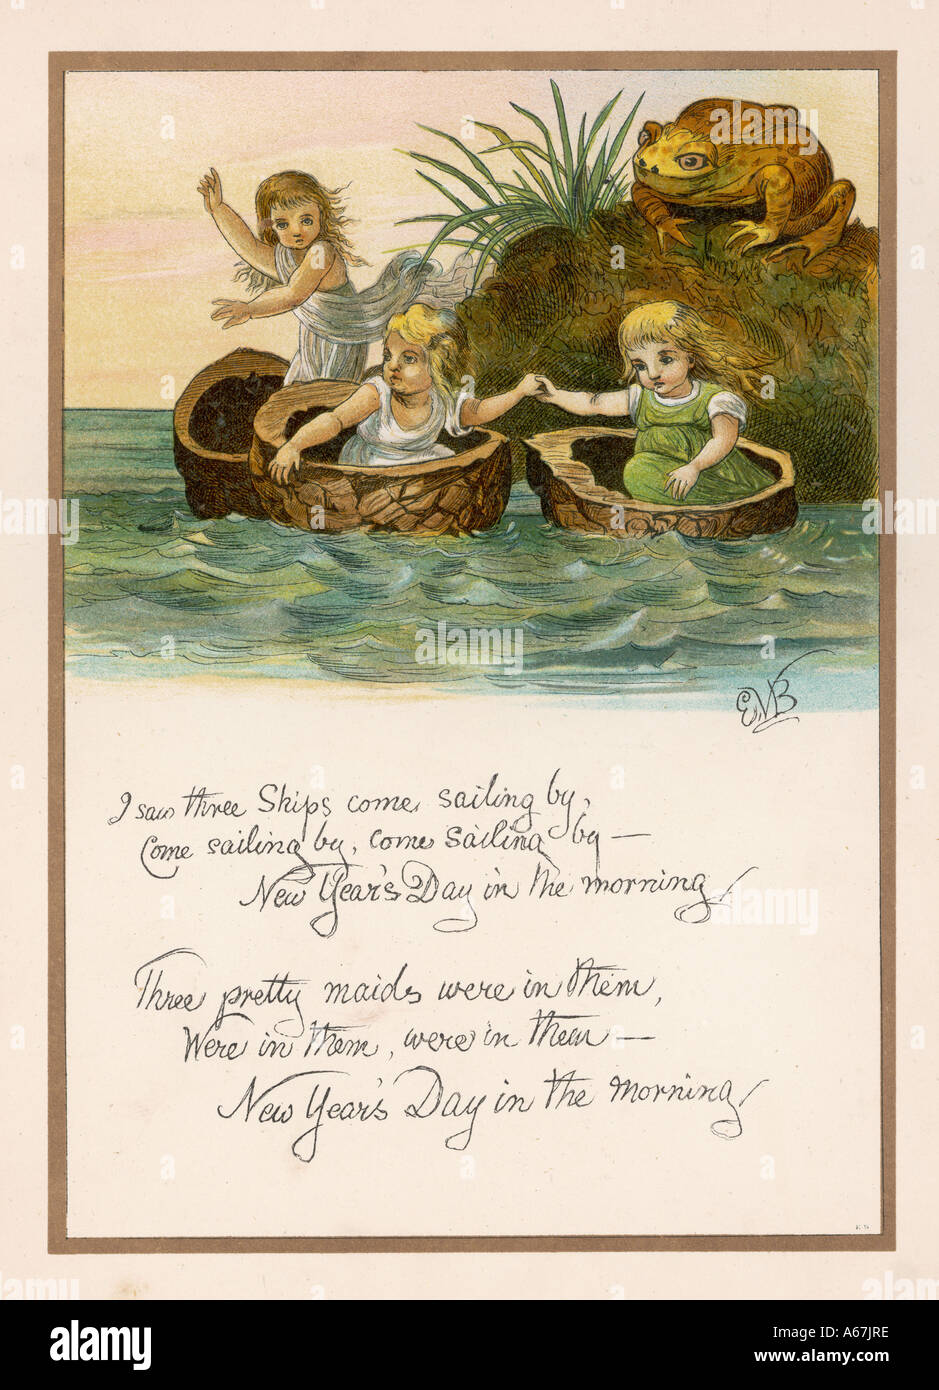 EVB
I saw three Ships come sailing by,
Come sailing by, come sailing by —
New Year's Day in the morning
Three pretty maids were in them,
Were in them, were in them —
New Year's Day in the morning
alamy
alamy
Image ID: A67JRE
www.alamy.com